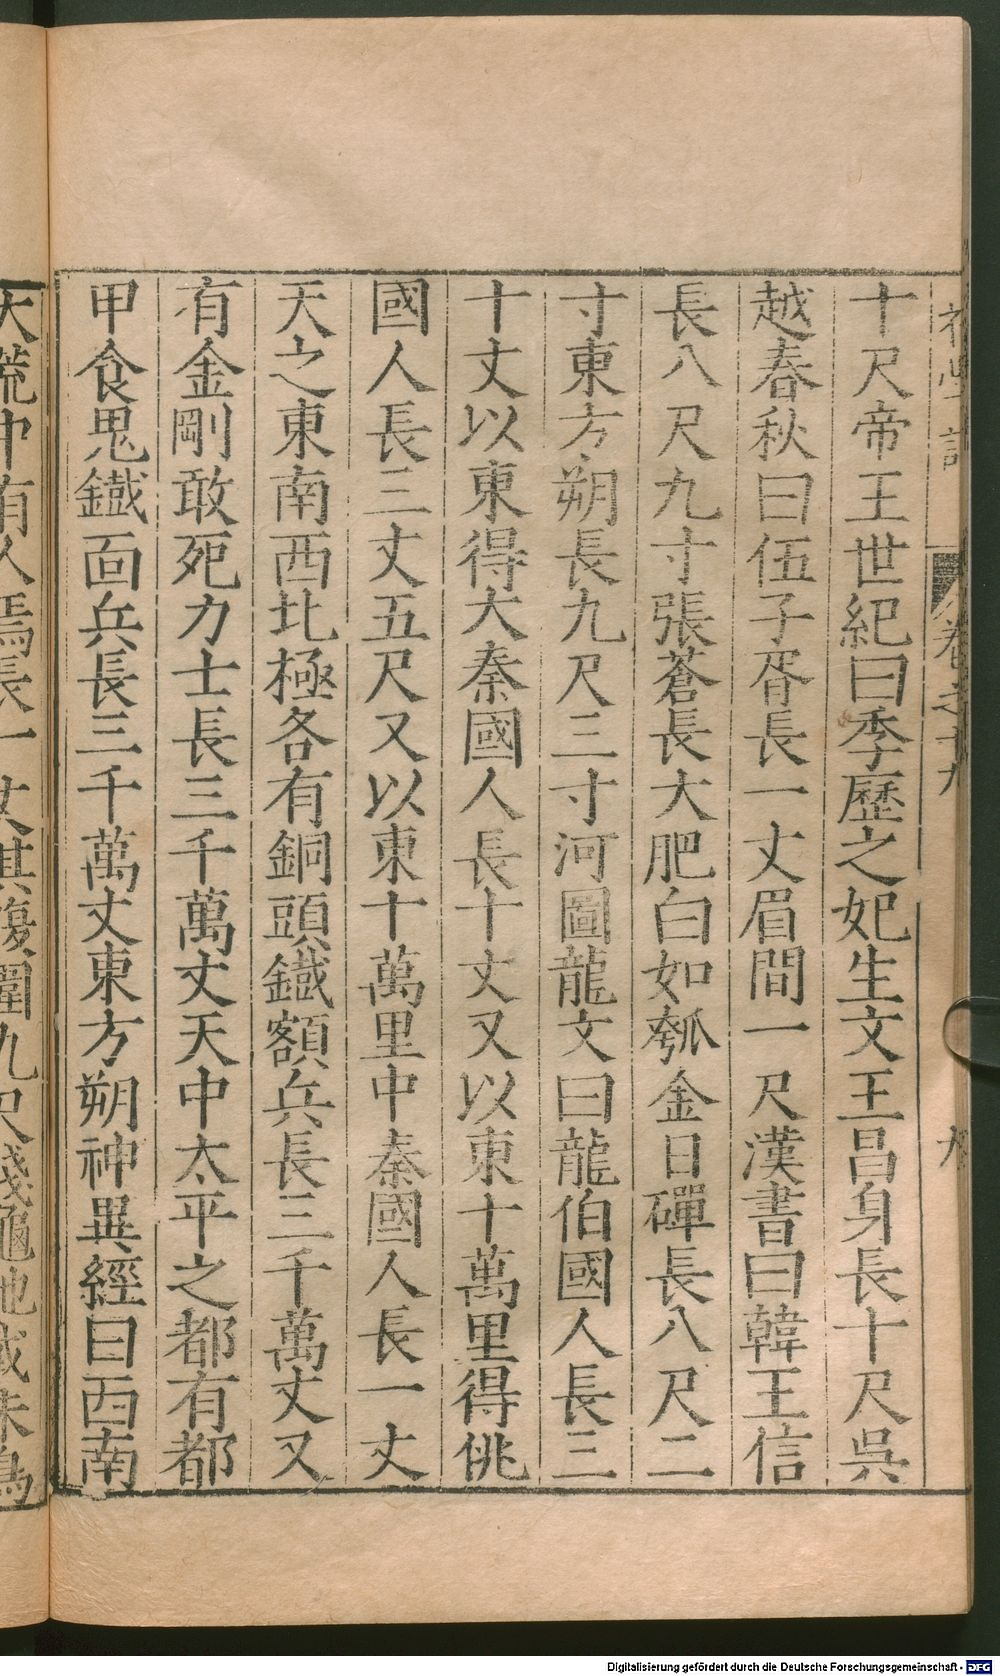 初學記 卷之十九 九
十尺帝王世紀曰季歷之妃生文王昌身長十尺吳
越春秋曰伍子胥長一丈眉間一尺漢書曰韓王信
長八尺九寸張蒼長大肥白如瓠金日磾長八尺二
寸東方朔長九尺三寸河圖龍文曰龍伯國人長三
十丈以東得大秦國人長十丈又以東十萬里得佻
國人長三丈五尺又以東十萬里中秦國人長一丈
天之東南西北極各有銅頭鐵額兵長三千萬丈又
有金剛敢死力士長三千萬丈天中太平之都有都
甲食鬼鐵面兵長三千萬丈東方朔神異經曰西南
大荒中有人焉長一丈其腹圍九尺踐龜蛇戴朱鳥
Digitalisierung gefördert durch die Deutsche Forschungsgemeinschaft - DFG